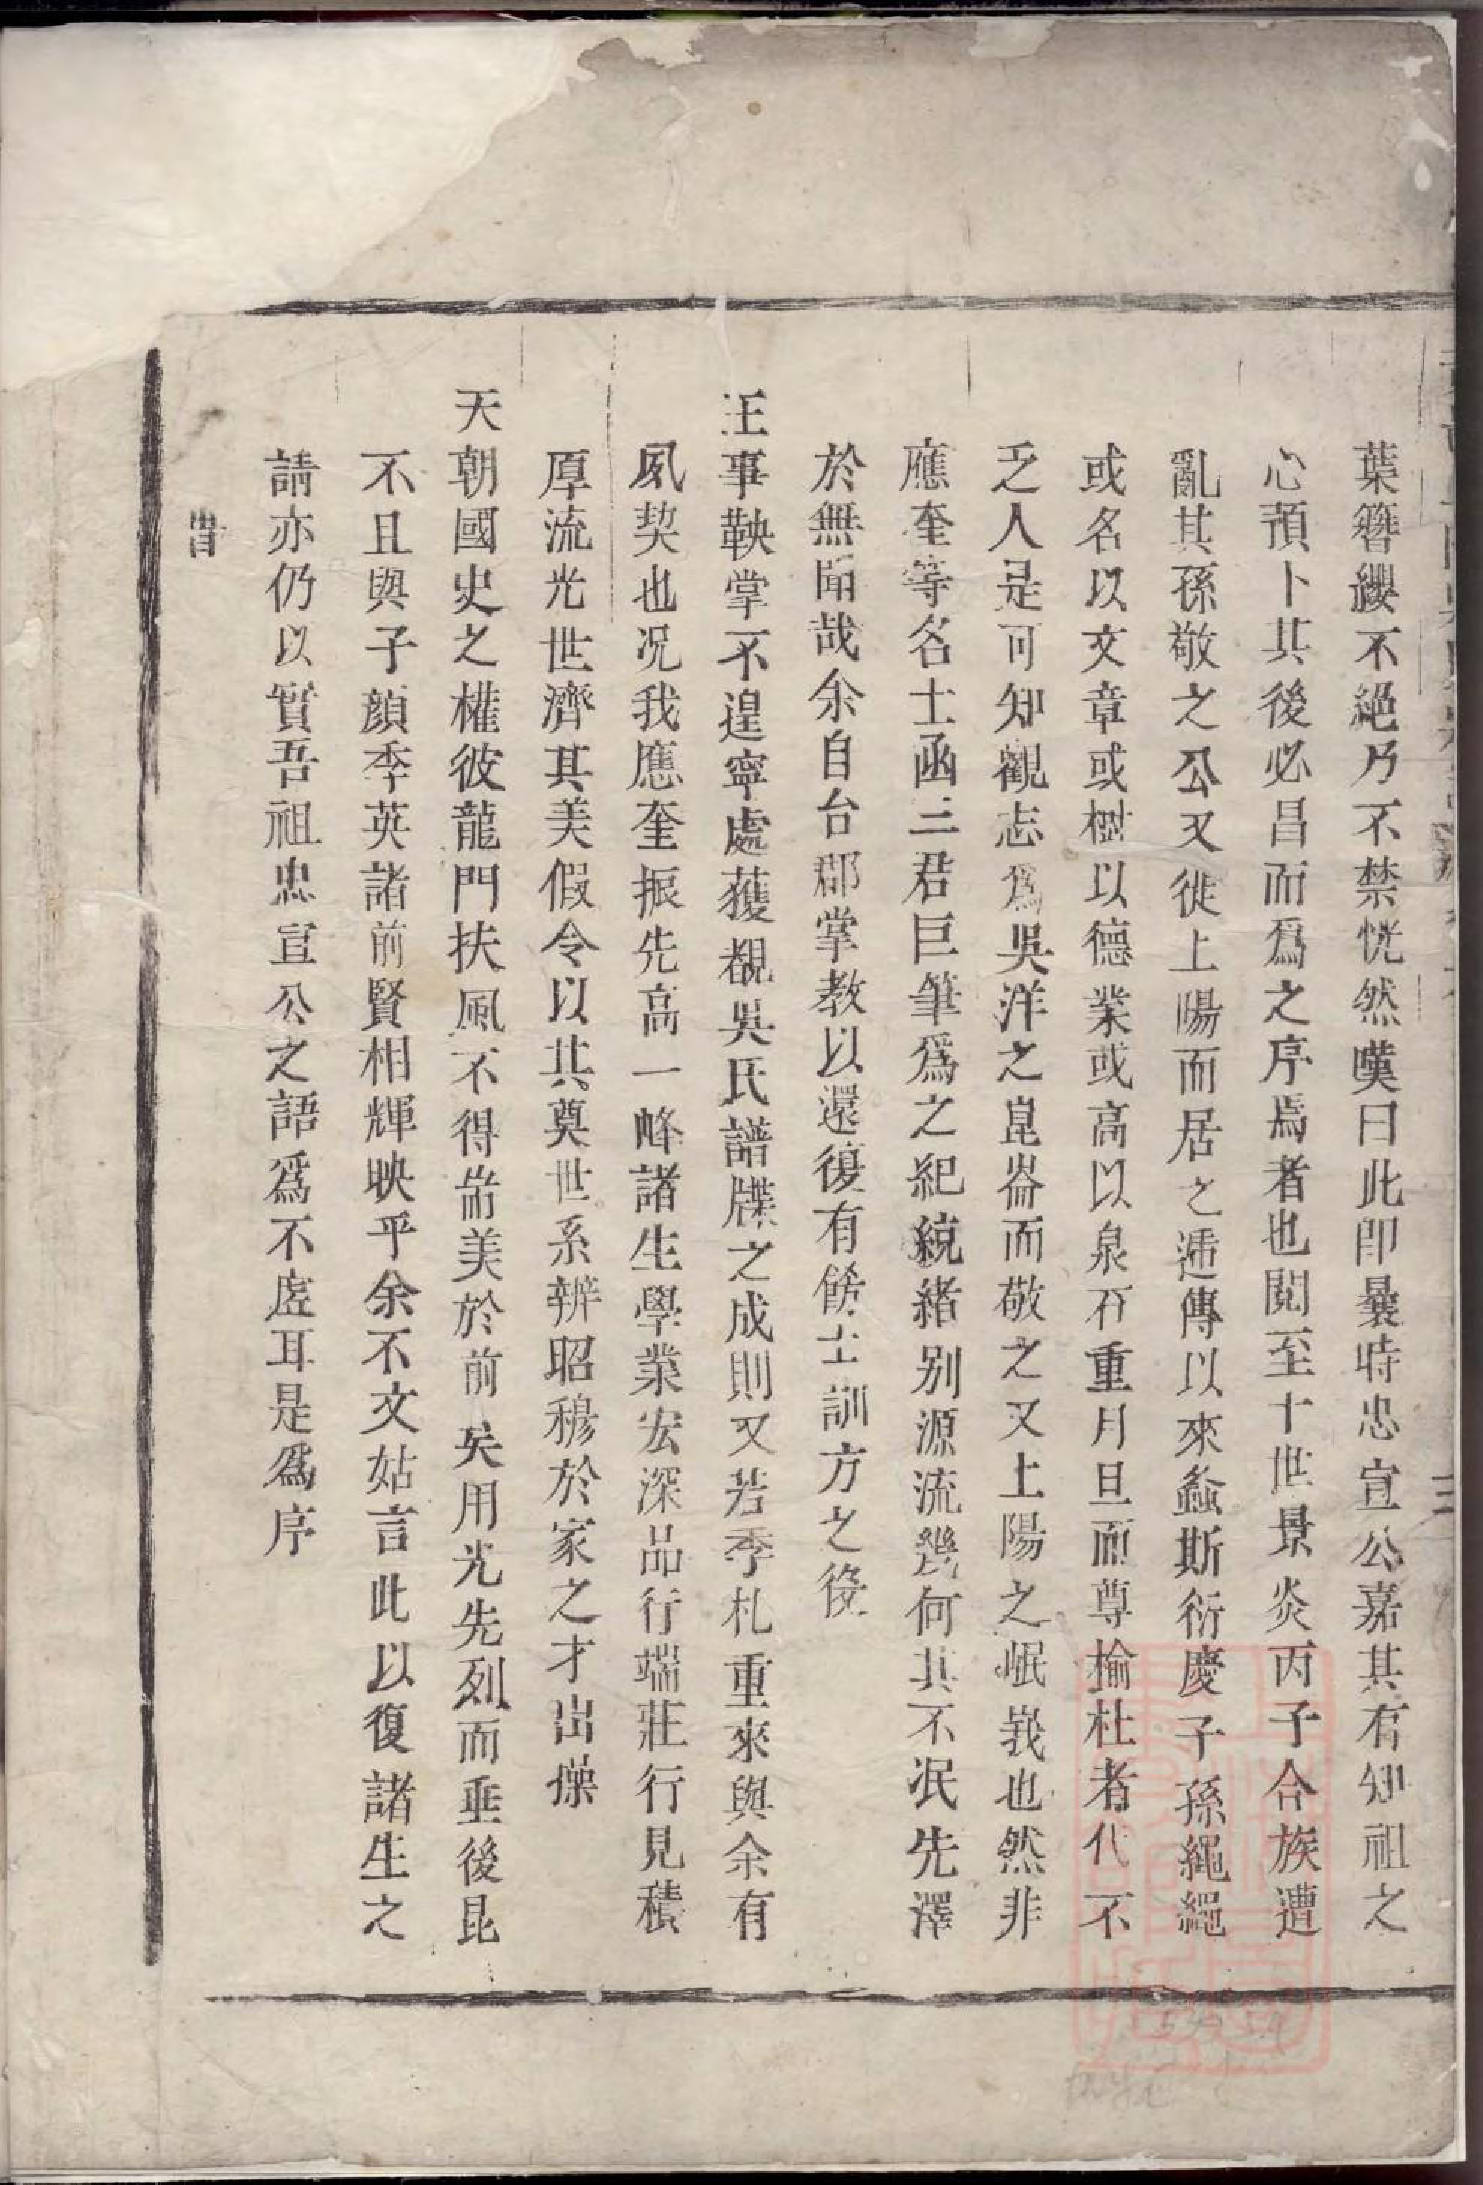 葉簪纓不絕乃不禁恍然嘆曰此即曩時忠宣公嘉其有知祖之
心預卜其後必昌而爲之序焉者也閱至十世景炎丙子合族遭
亂其孫敬之公又徙上陽而居之遞傳以來螽斯衍慶子孫繩繩
或名以文章或樹以德業或高以泉石重月旦而尊掄杜者代不
乏人是可知觀志爲吳洋之崑崙而敬之又上陽之岷峩也然非
應奎等名士函三君巨筆爲之紀統緒別源流幾何其不泯先澤
於無聞哉余自台郡掌教以還復有餘士訓方之役
王事鞅掌不遑寧處獲覩吳氏譜牒之成則又若季札重來與余有
夙契也况我應奎振先高一峰諸生學業宏深品行端莊行見積
厚流光世濟其美假令以其奠世系辨昭穆於家之才出操
天朝國史之權彼龍門扶風不得耑美於前矣用光先烈而垂後昆
不且與子顏季英諸前賢相輝映乎余不文姑言此以復諸生之
請亦仍以實吾祖忠宣公之語爲不虛耳是爲序
旹